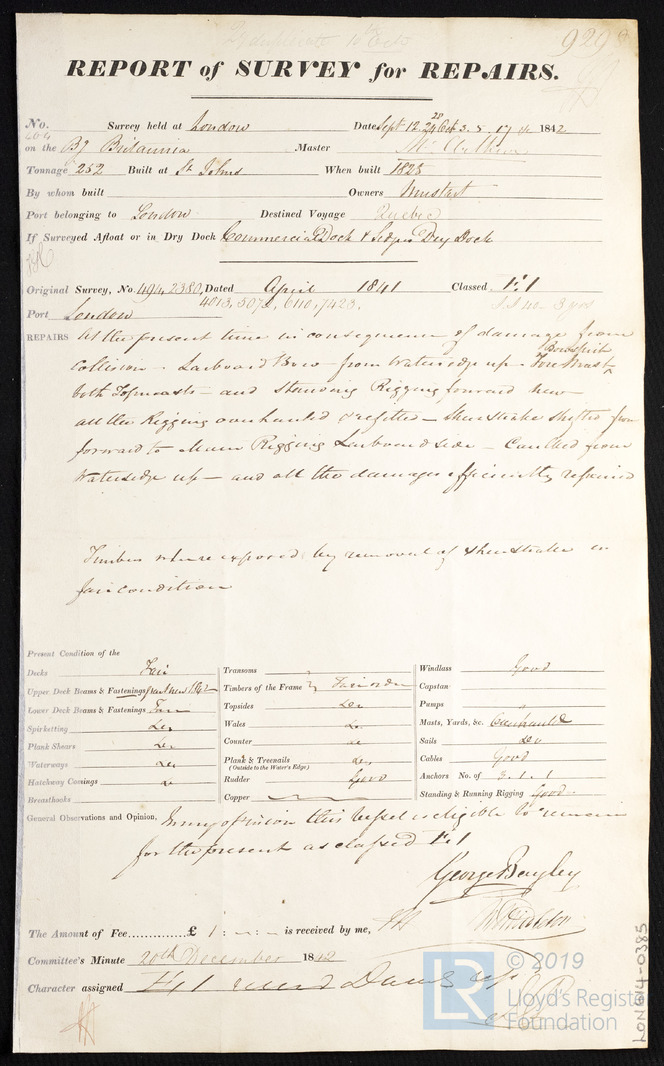 9298
REPORT of SURVEY for REPAIRS.
No. Survey held at London Date Sept 12. 24 28 Oct 3. 5. 17 1842
on the Bg Britannia Master
Tonnage 252 Built at St Johns When built 1823
By whom built Owners
Port belonging to London Destined Voyage Quebec
If Surveyed Afloat or in Dry Dock Commercial Dock & Dry Dock
Original Survey, No. 494, 2380, Dated April 1841 Classed Æ 1
4013. 5072. 6110. 7423.
Port London
REPAIRS At the present time in consequence of damage from
Collision. Larboard Bow from Watersedge up - Fore Mast Bowsprit
both Topmasts - and standing Rigging forward new -
all the Rigging overhauled & refitted - Sheerstrake shifted from
forward to Main Rigging Larboard side - Caulked from
Watersedge up - and all the damages efficiently repaired
Timbers where exposed by removal of sheerstrake in
fair condition
Present Condition of the
Decks Fair
Upper Deck Beams & Fastenings part new 1842
Lower Deck Beams & Fastenings Fair
Spirketting Do
Plank Shears Do
Waterways Do
Hatchway Comings Do
Breasthooks
Transoms
Timbers of the Frame Fair order
Topsides Do
Wales Do
Counter Do
Plank & Treenails Do
(Outside to the Water's Edge)
Rudder Good
Copper
Windlass Good
Capstan
Pumps "
Masts, Yards, &c. Overhauled
Sails Do
Cables Good
Anchors No. of 3. 1. 1
Standing & Running Rigging Good
General Observations and Opinion, In my opinion this Vessel is eligible to remain
for the present as classed Æ 1
George Bayley
The Amount of Fee.............. £ 1: -: - is received by me,
Committee's Minute 20th December 1842
Character assigned Æ 1
LON614-0385
LR
© 2019
Lloyd's Register
Foundation